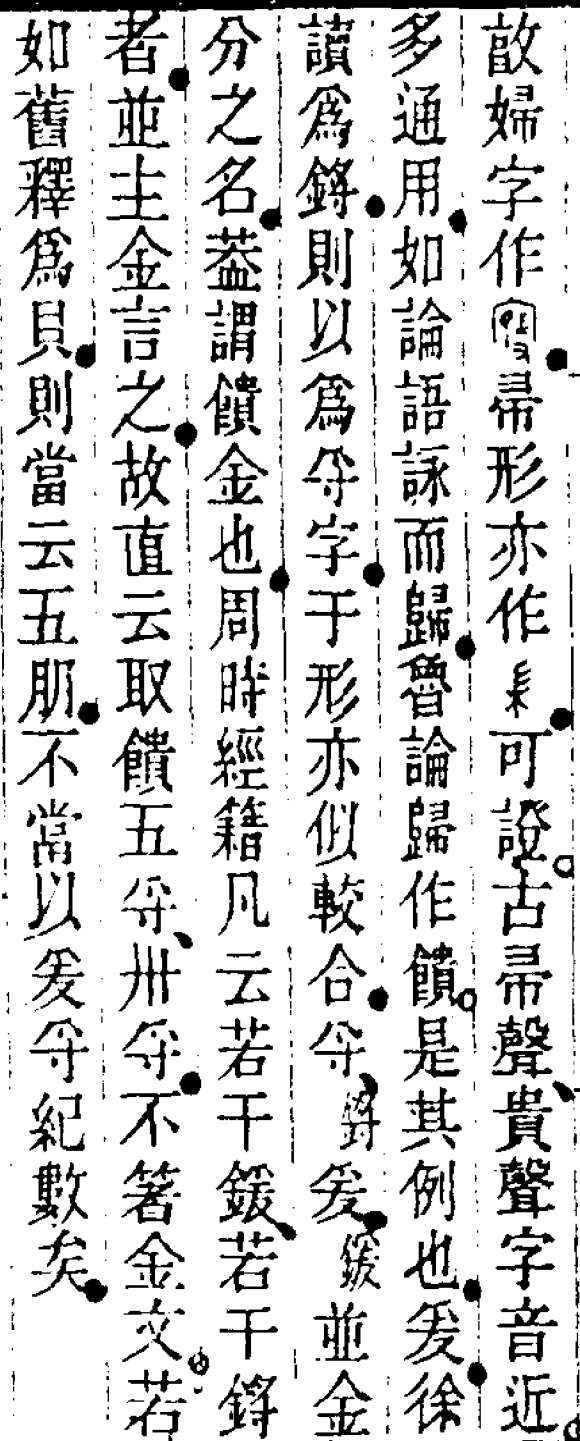 敃婦字作帚形亦作可證古帚聲貴聲字音近
多通用如論語詠而歸魯論歸作饋是其例也爰徐
讀爲鋝則以爲寽字于形亦似較合寽鋝爰鍰並金
分之名葢謂饋金也周時經籍凡云若干鍰若干鋝
者並主金言之故直云取饋五寽卅寽不箸金文若
如舊釋爲貝則當云五朋不當以爰寽紀數矣